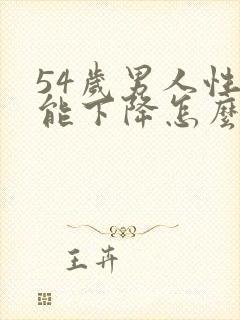 54歲男人性
能下降怎麼
王卉